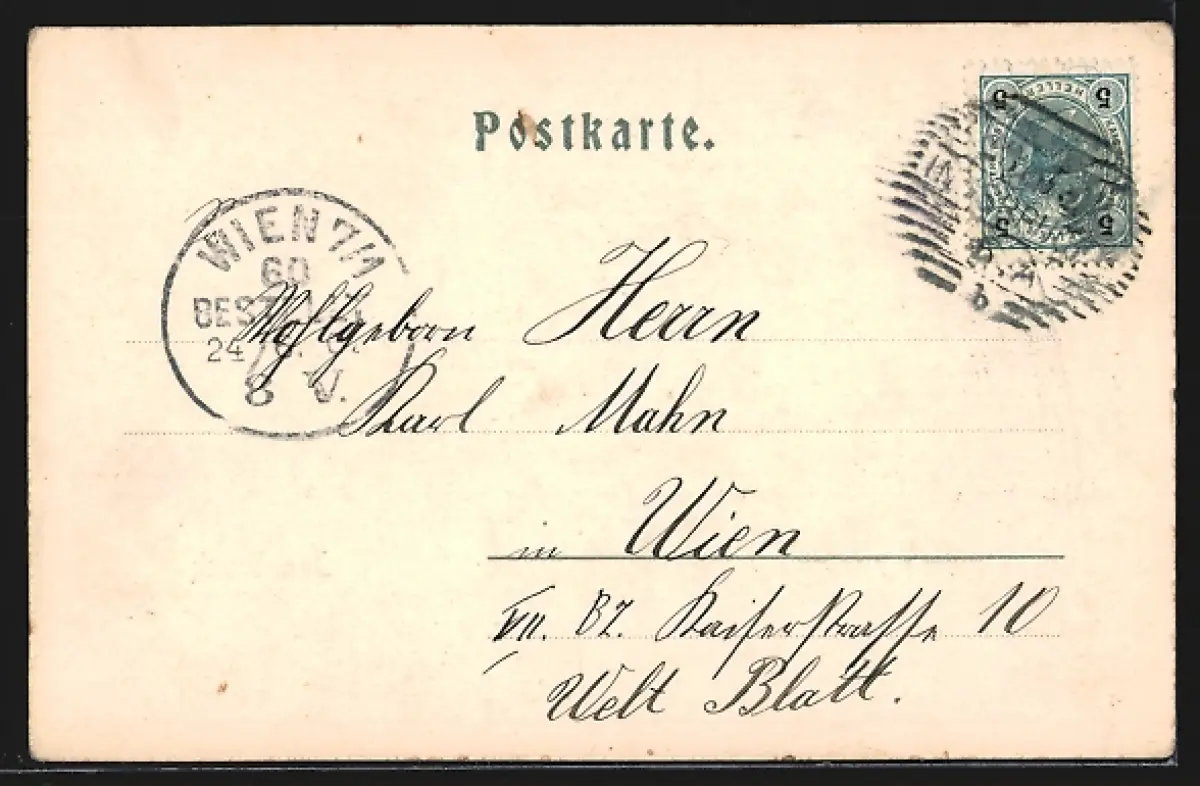 Postkarte.
WIEN 7/1
60
BEST
24
8 V.
5 5
HELLER
5 5
b
Wohlgeborn Herrn
Karl Mahn
in Wien
VII. BZ. Kaiserstrasse 10
Welt Blatt.